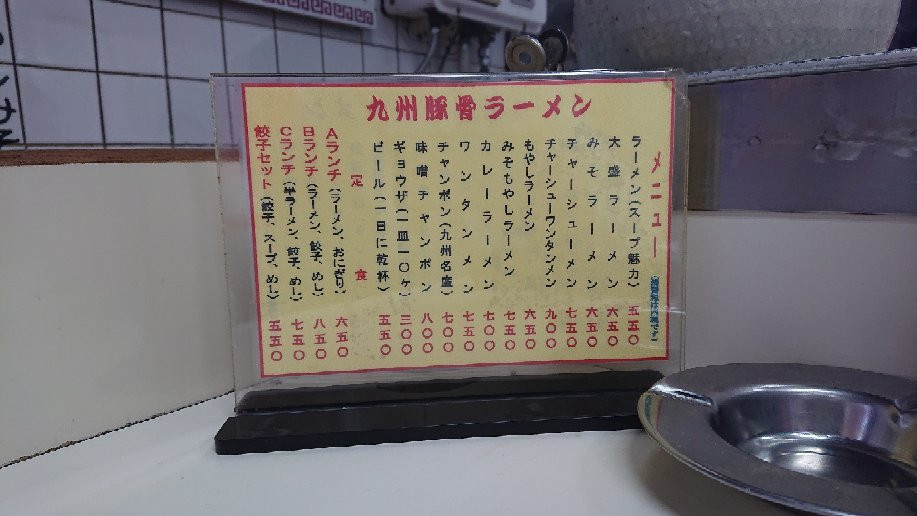 九州豚骨ラーメン
メニュー
ラーメン(スープ魅力) 五五〇
大盛ラーメン 六五〇
みそラーメン 六五〇
チャーシューメン 七五〇
チャーシューワンタンメン 九〇〇
もやしラーメン 六五〇
みそもやしラーメン 七五〇
カレーラーメン 七〇〇
ワンタンメン 七五〇
チャンポン(九州名産) 七〇〇
味噌チャンポン 八〇〇
ギョウザ(一皿一〇ヶ) 三〇〇
ビール(一日に乾杯) 五五〇
定食
Aランチ(ラーメン、おにぎり) 六五〇
Bランチ(ラーメン、餃子、めし) 八五〇
Cランチ(半ラーメン、餃子、めし) 七五〇
餃子セット(餃子、スープ、めし) 五五〇